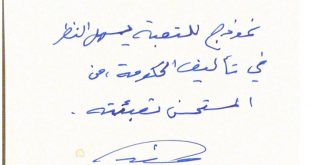 نموذج للتعبئة يسهل النظر
في تأليف الحكومة، من
المستحسن تعبئته.